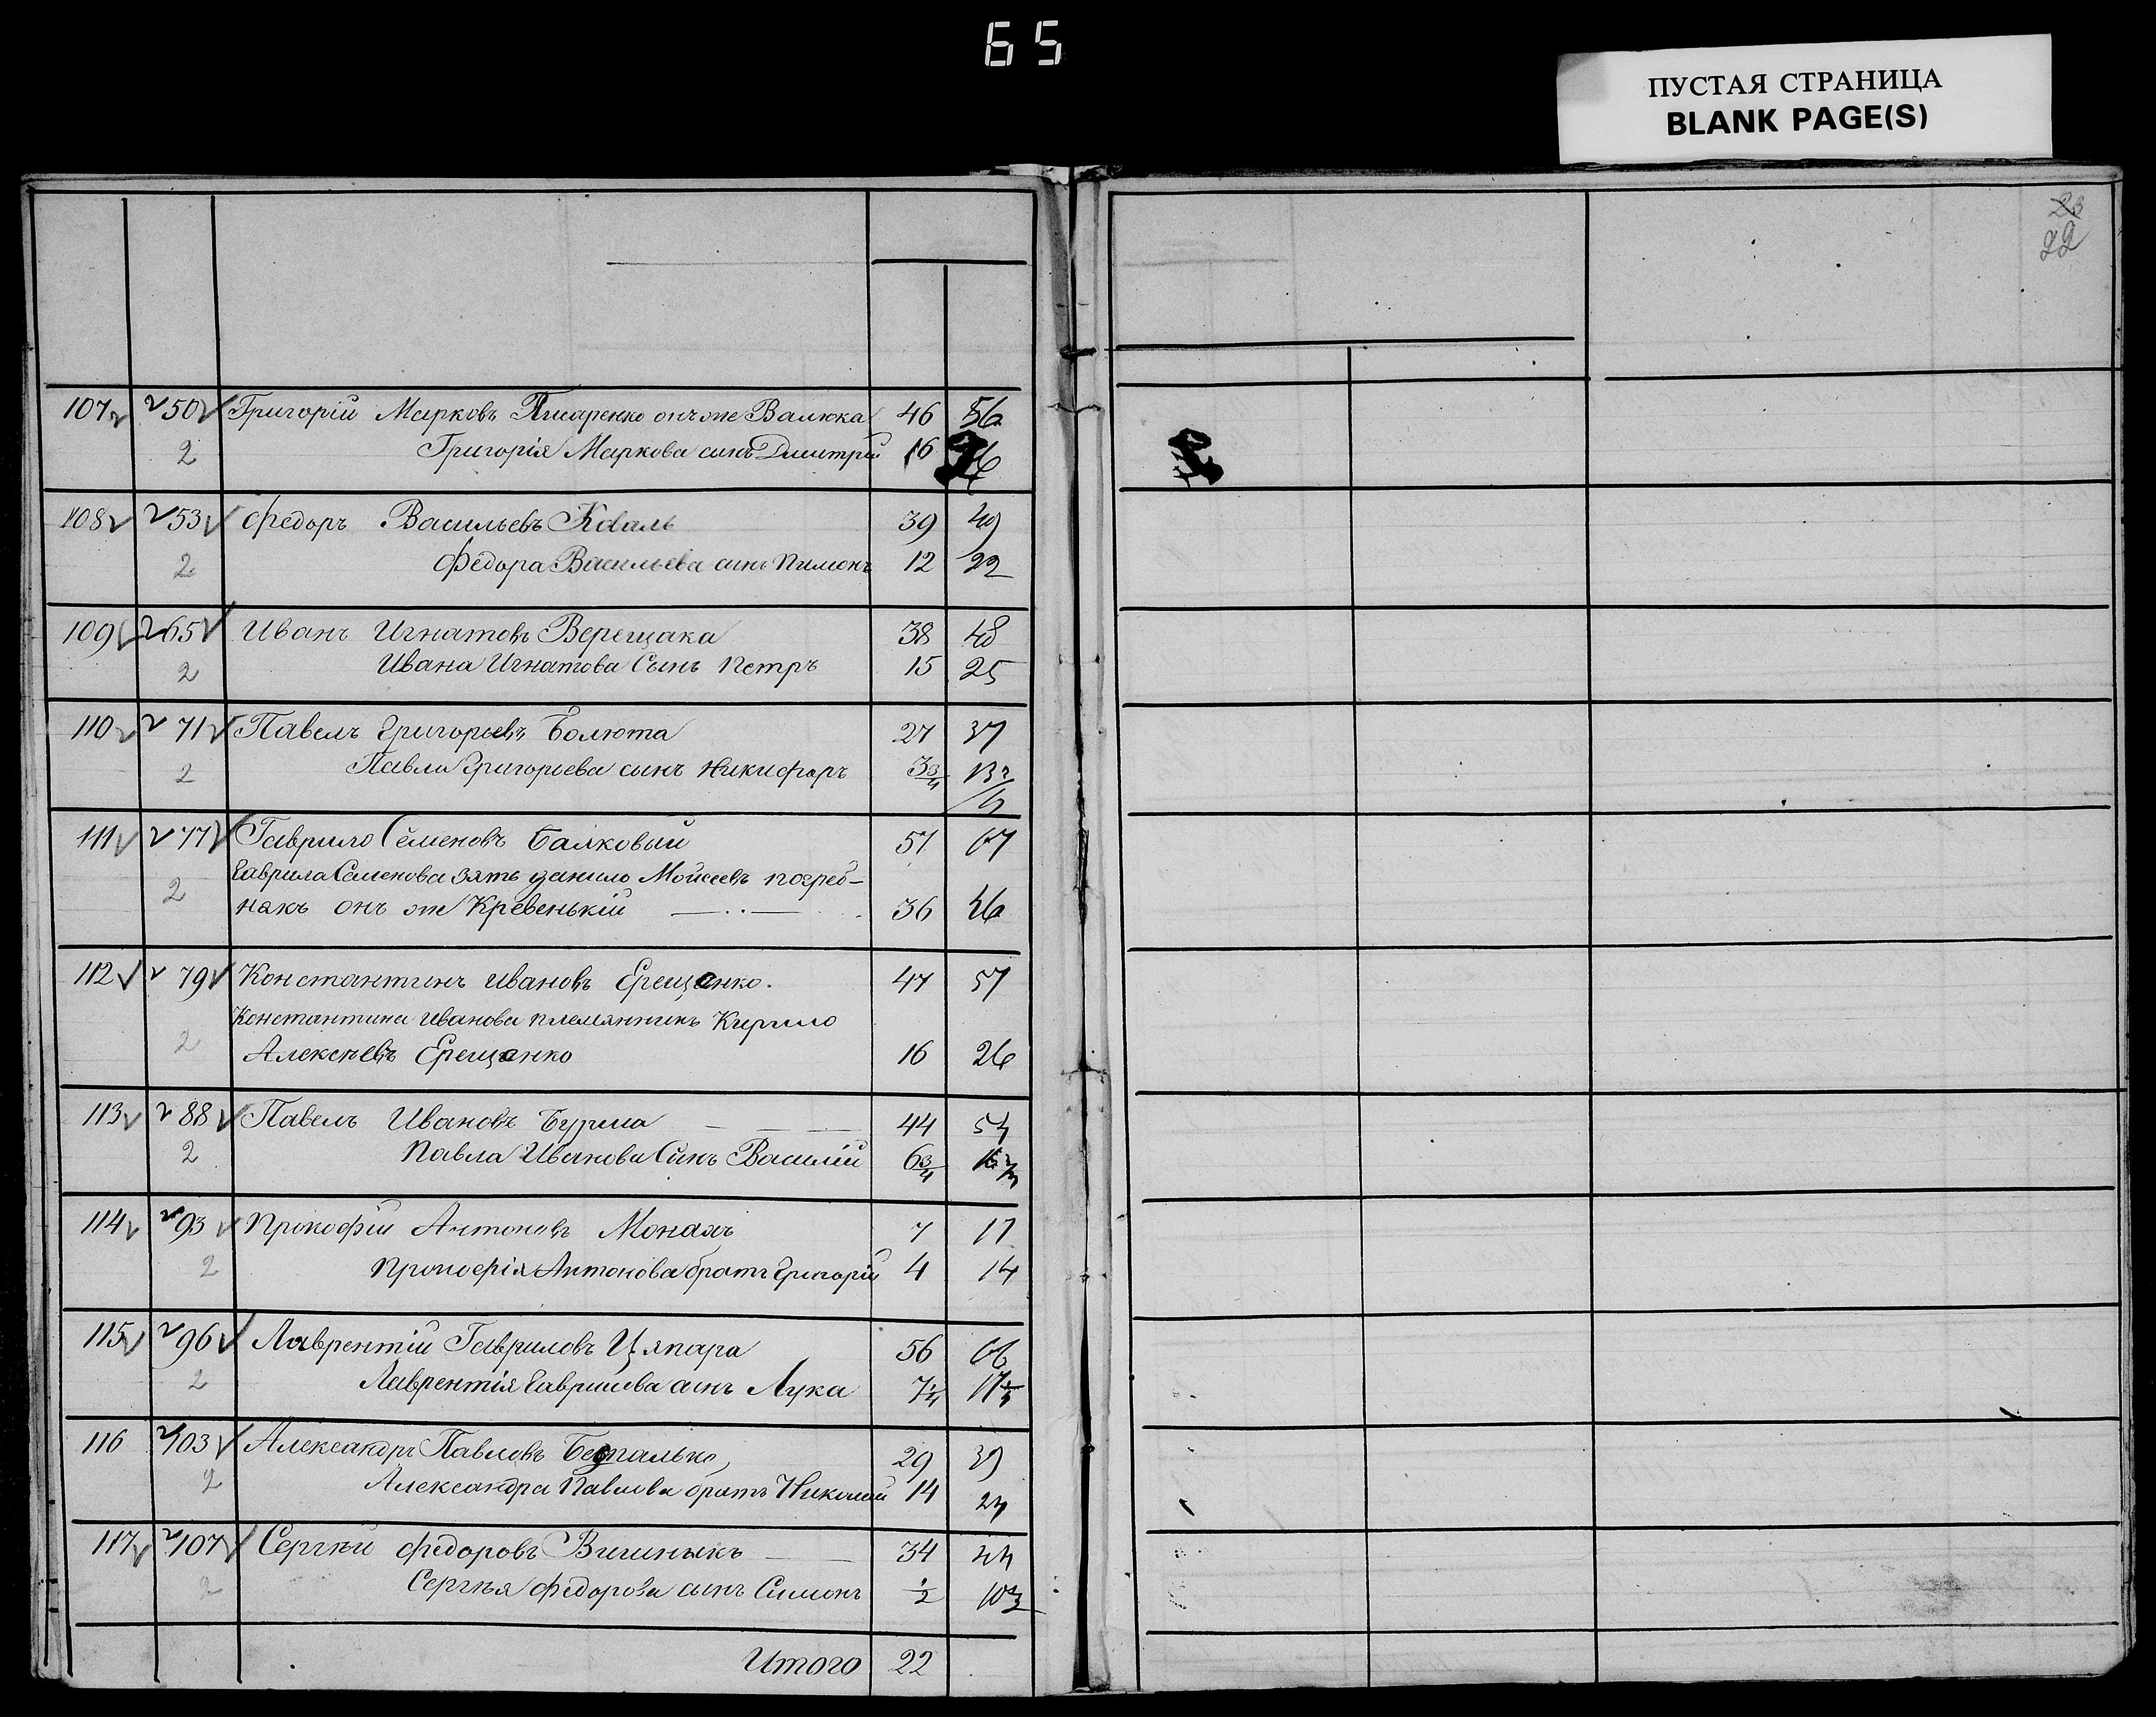 65
ПУСТАЯ СТРАНИЦА
BLANK PAGE(S)
23
22
107 50 Григорій Марковъ Писаренко онъ же Валюка 46 56
2 Григорія Маркова сынъ Димитрій 16
108 53 Федоръ Васильевъ Коваль 39 49
2 Федора Васильева сынъ Пимонъ 12 22
109 65 Иванъ Игнатовъ Верещака 38 48
2 Ивана Игнатова Сынъ Петръ 15 25
110 71 Павелъ Григорьевъ Болюта 27 37
2 Павла Григорьева сынъ Никифоръ 3 3/4
111 77 Гаврило Семеновъ Балковый 57 67
Гаврила Семенова зять данило Мойсеевъ погреб-
2 накъ онъ же Кревенькій 36 46
112 79 Константинъ Ивановъ Ерещенко. 47 57
Константина Иванова племянникъ Кирило
2 Алексѣевъ Ерещенко 16 26
113 88 Павелъ Ивановъ Бурма 44 54
2 Павла Иванова Сынъ Василій 6 3/4
114 93 Прокофій Антоновъ Монахъ 7 17
2 Прокофія Антонова братъ Григорій 4 14
115 96 Лаврентій Гавриловъ Цяпара 56 66
2 Лаврентія Гаврилова сынъ Лука 7 1/4 17 1/4
116 103 Александръ Павловъ 29 39
2 Александра Павлова братъ Николай 14 24
117 107 Сергѣй Федоровъ 34 44
2 Сергѣя Федорова сынъ Симонъ 1/2 10 1/2
Итого 22